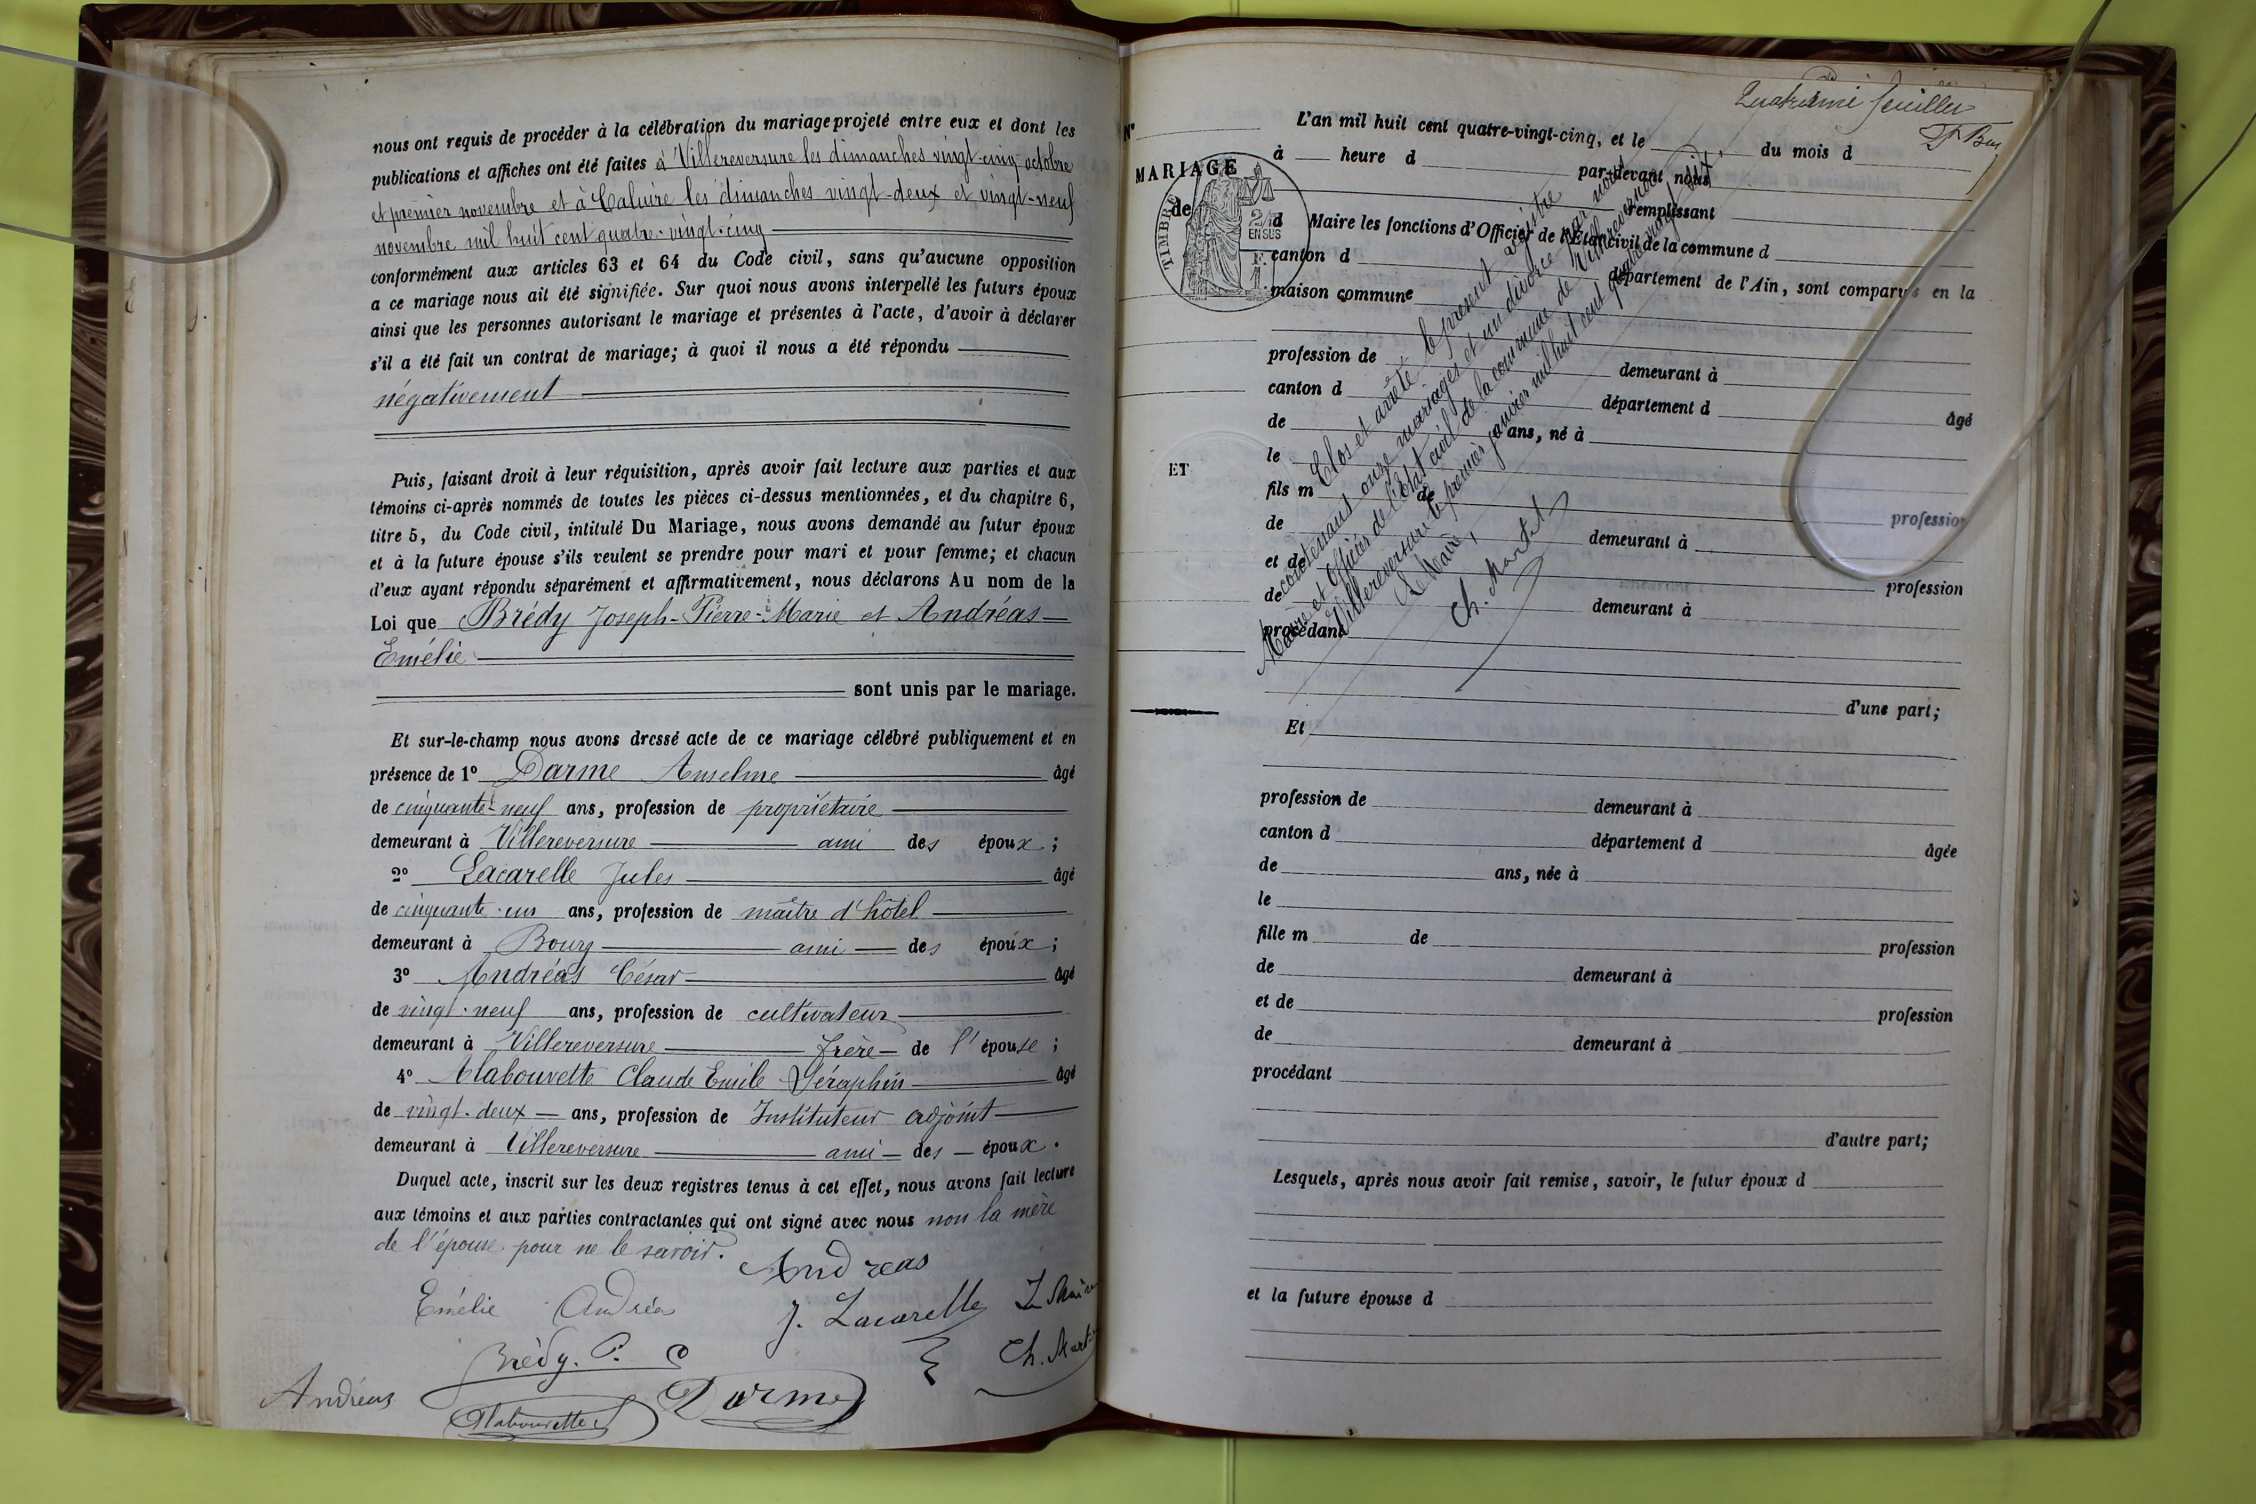 nous ont requis de procéder à la célébration du mariage projeté entre eux et dont les
publications et affiches ont été faites à Villereversure les dimanches vingt-cinq octobre
et premier novembre et à Caluire les dimanches vingt-deux et vingt-neuf
novembre mil huit cent quatre-vingt-cinq
conformément aux articles 63 et 64 du Code civil, sans qu'aucune opposition
a ce mariage nous ait été signifiée. Sur quoi nous avons interpellé les futurs époux
ainsi que les personnes autorisant le mariage et présentes à l'acte, d'avoir à déclarer
s'il a été fait un contrat de mariage; à quoi il nous a été répondu
négativement
Puis, faisant droit à leur réquisition, après avoir fait lecture aux parties et aux
témoins ci-après nommés de toutes les pièces ci-dessus mentionnées, et du chapitre 6,
titre 5, du Code civil, intitulé Du Mariage, nous avons demandé au futur époux
et à la future épouse s'ils veulent se prendre pour mari et pour femme; et chacun
d'eux ayant répondu séparément et affirmativement, nous déclarons Au nom de la
Loi que Brédy Joseph-Pierre-Marie et Andréas
Emélie
sont unis par le mariage.
Et sur-le-champ nous avons dressé acte de ce mariage célébré publiquement et en
présence de 1° Darme Anselme âgé
de cinquante-neuf ans, profession de propriétaire
demeurant à Villereversure ami des époux;
2° Lacarelle Jules âgé
de cinquante-un ans, profession de maître d'hôtel
demeurant à Bourg ami des époux;
3° Andréas César âgé
de vingt-neuf ans, profession de cultivateur
demeurant à Villereversure frère de l'épouse;
4° Mabouvette Claude Emile Séraphin âgé
de vingt-deux ans, profession de Instituteur adjoint
demeurant à Villereversure ami des époux.
Duquel acte, inscrit sur les deux registres tenus à cet effet, nous avons fait lecture
aux témoins et aux parties contractantes qui ont signé avec nous non la mère
de l'épouse pour ne le savoir.
Andreas
Emélie Andréa
J. Lacarelle
Le Maire
Brédy. P.
Ch. Martin
Andréas
Darme
Quatrième feuillet
N°
MARIAGE
de
ET
TIMBRE
EN SUS
L'an mil huit cent quatre-vingt-cinq, et le du mois d
à heure d par-devant nous
remplissant
d Maire les fonctions d'Officier de l'Etat civil de la commune d
canton d département de l'Ain, sont comparus en la
maison commune
profession de demeurant à
canton d département d
de ans, né à âgé
le
fils m de
de demeurant à profession
et de
de demeurant à profession
procédant
d'une part;
Clos et arrêté le présent registre
contenant onze mariages et un divorce par nous
Maire et officier de l'Etat civil de la commune de Villereversure
Villereversure le premier janvier mil huit cent quatre vingt six.
Le Maire,
Ch. Martin
Et
profession de demeurant à
canton d département d
de ans, née à âgée
le
fille m de
profession
de demeurant à
et de
profession
de demeurant à
procédant
d'autre part;
Lesquels, après nous avoir fait remise, savoir, le futur époux d
et la future épouse d